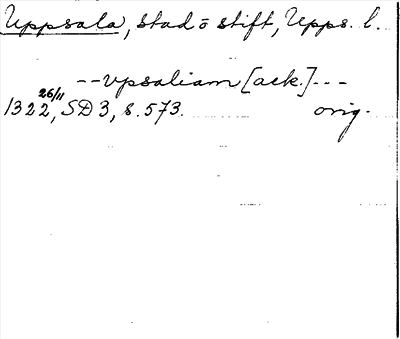 Uppsala, stad o stift, Upps. l.
--vpsaliam [ack.]---
26/11
1322, SD 3, s. 573. orig.